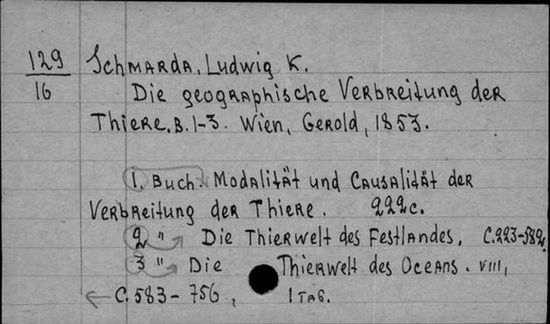 129
16
Schmarda, Ludwig K.
Die geographische Verbreitung der
Thiere. B. 1-3. Wien, Gerold, 1853.
1. Buch. Modalität und Causalität der
Verbreitung der Thiere. 222 c.
2 " Die Thierwelt des Festlandes. C. 223-582.
3 " Die Thierwelt des Oceans. VIII,
C. 583-756, 1 Taf.